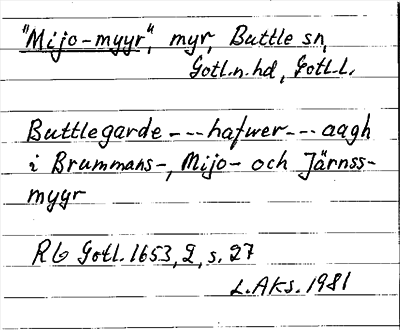 "Mijo-myyr", myr, Buttle sn,
Gotl.n.hd, Gotl.l.
Buttlegarde ---hafwer--- aagh
i Brummans-, Mijo- och Järnss-
myyr
Rb Gotl. 1653, 2, s. 27
L.Aks. 1981